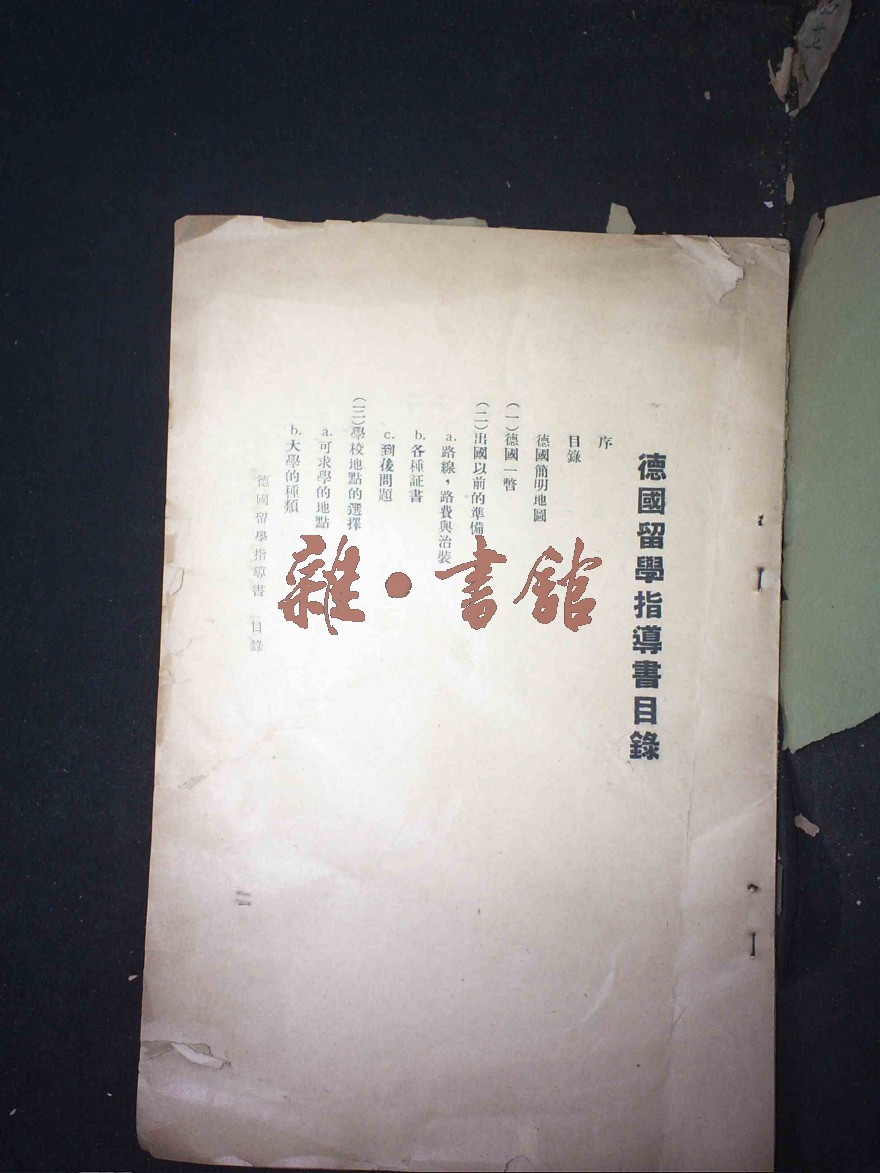 德國留學指導書目錄
序
目錄
德國簡明地圖
(一)德國一瞥
(二)出國以前的準備
a.路線，路費與治裝
b.各種証書
c.到後問題
(三)學校地點的選擇
a.可求學的地點
b.大學的種類
德國留學指導書 目錄
雜•書館